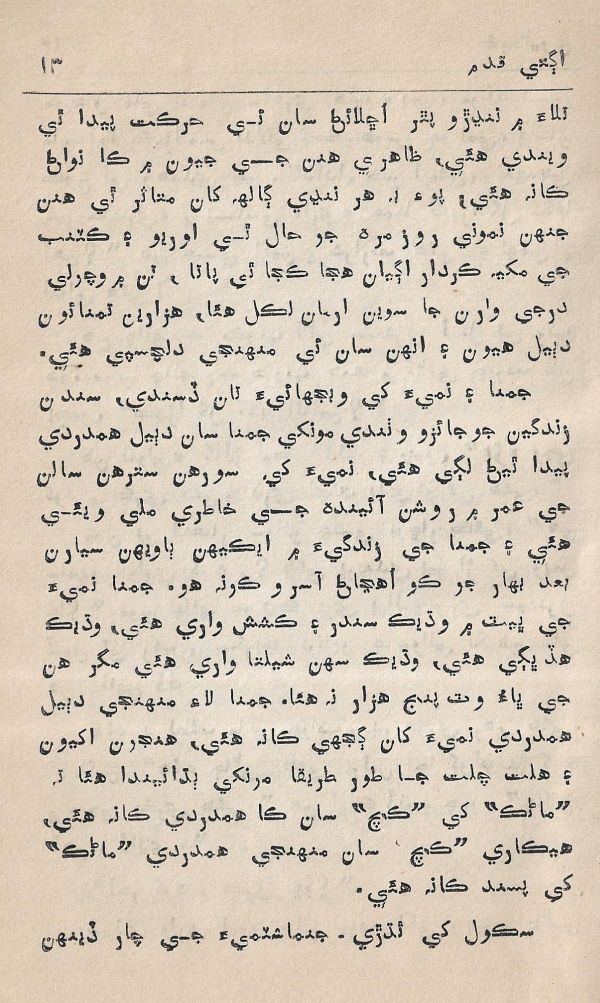 اڳتي قدم ١٣
تلاءَ ۾ ننڍڙو پٿر اڇلائڻ سان ئي حرڪت پيدا ٿي
ويندي هئي، ظاهري هنن جي جيون ۾ ڪا نواڻ
ڪانہ هئي؛ پوءِ بہ هر ننڍي ڳالهہ کان متاثر ٿي هنن
جنهن نموني روزمره جو حال ٿي اوريو ۽ ڪٽنب
جي مکيہ ڪردار اڳيان هڃا ڪڃا ٿي پاتا، تن ۾ وچولي
درجي وارن جا سوين ارمان لڪل هئا، هزارين تمنائون
دٻيل هيون ۽ انهن سان ئي منهنجي دلچسپي هئي.
جمنا ۽ نميءَ کي ويجهائيءَ تان ڏسندي، سندن
زندگين جو جائزو وٺندي مونکي جمنا سان دٻيل همدردي
پيدا ٿيڻ لڳي هئي، نميءَ کي سورهن سترهن سالن
جي عمر ۾ روشن آئينده جي خاطري ملي ويئي
هئي ۽ جمنا جي زندگيءَ ۾ ايڪيهن ٻاويهن سيارن
بعد بهار جو ڪو اهڃاڻ آسرو ڪونہ هو. جمنا نميءَ
جي ڀيٽ ۾ وڌيڪ سندر ۽ ڪشش واري هئي، وڌيڪ
هڏ ڀڳي هئي، وڌيڪ سهن شيلتا واري هئي مگر هن
جي پيءُ وٽ پنج هزار نہ هئا. جمنا لاءِ منهنجي دٻيل
همدردي نميءَ کان ڳجهي ڪانہ هئي، هنجون اکيون
۽ هلت چلت جا طور طريقا مونکي ٻڌائيندا هئا تہ
”ماڻڪ“ کي ”ڪچ“ سان ڪا همدردي ڪانہ هئي،
هيڪاري ”ڪچ“ سان منهنجي همدردي ”ماڻڪ“
کي پسند ڪانہ هئي.
سڪول کي ٿڌڙي، جنماشٽميءَ جي چار ڏينهن